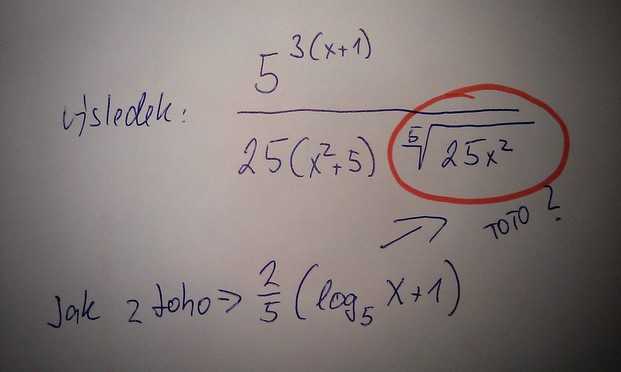 výsledek: 5^{3(x+1)} / 25(x²+5) ⁵√(25x²)
TOTO ?
Jak z toho => 2/5 (log₅ x+1)